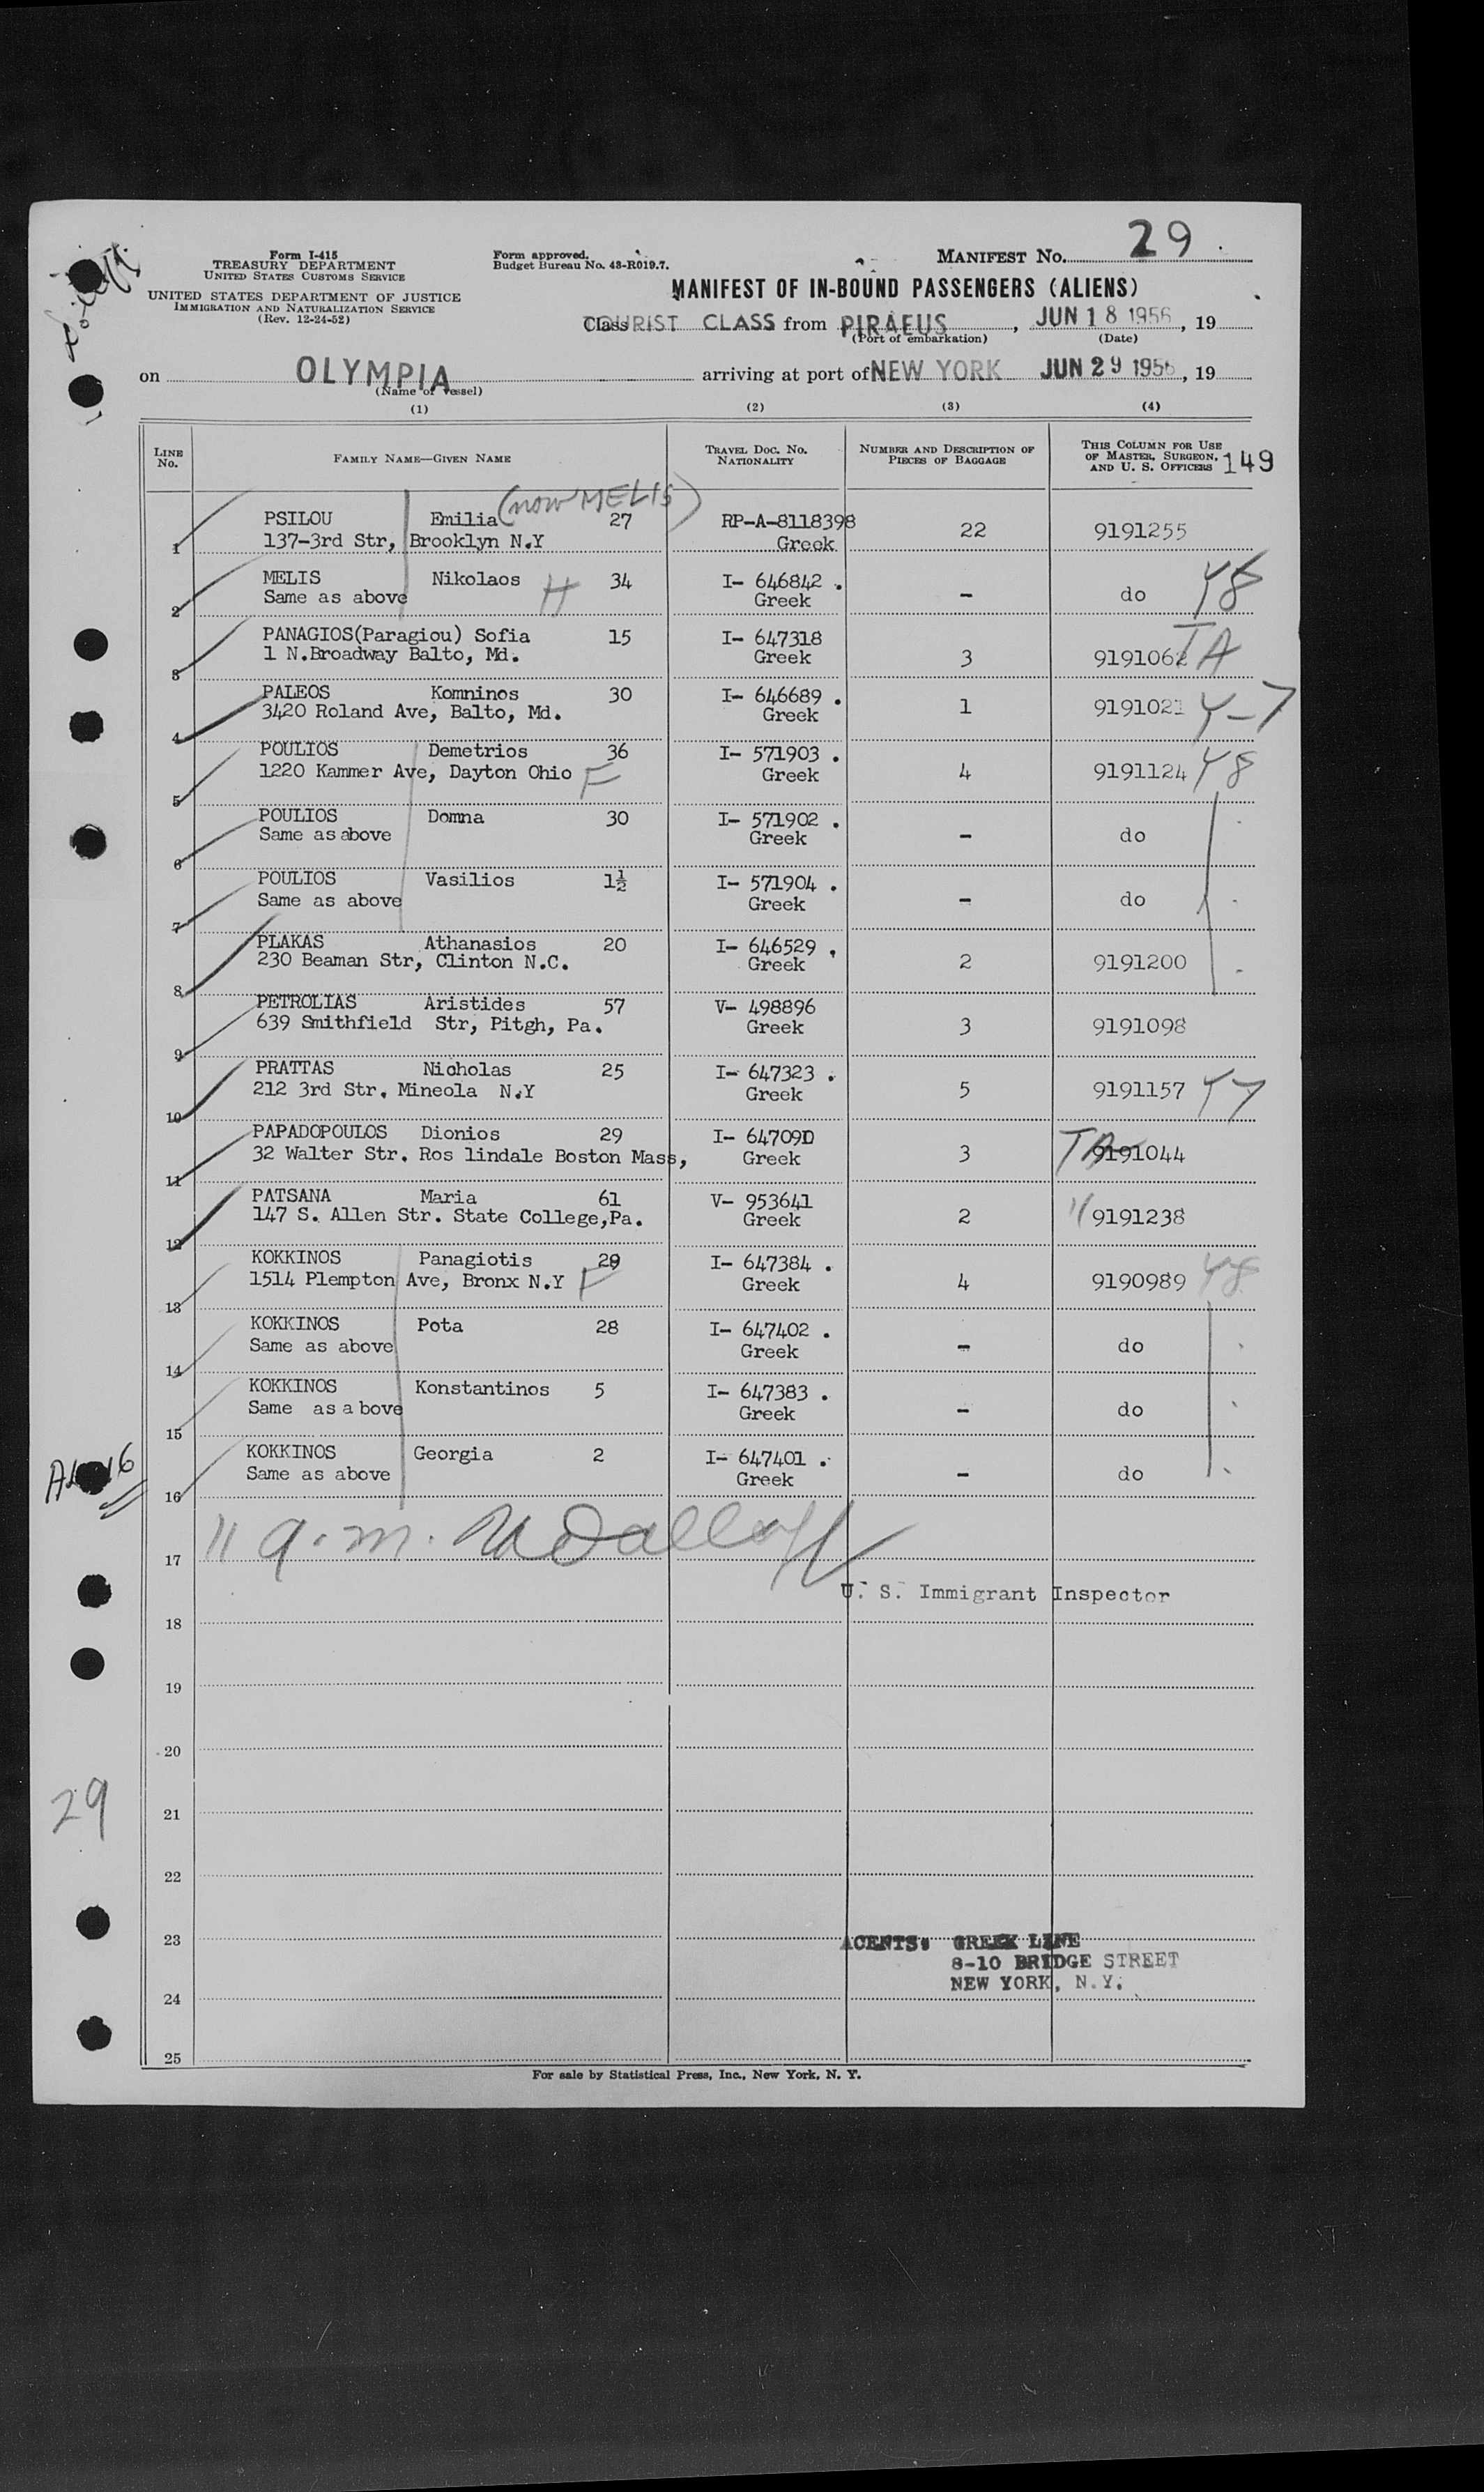 Form I-415
TREASURY DEPARTMENT
UNITED STATES CUSTOMS SERVICE
UNITED STATES DEPARTMENT OF JUSTICE
IMMIGRATION AND NATURALIZATION SERVICE
(Rev. 12-24-52)
Form approved.
Budget Bureau No. 43-R019.7.
MANIFEST No. 29
MANIFEST OF IN-BOUND PASSENGERS (ALIENS)
Class TOURIST CLASS from PIRAEUS, JUN 18 1956, 19
(Port of embarkation) (Date)
on OLYMPIA arriving at port of NEW YORK JUN 29 1956, 19
(Name of vessel)
(1) (2) (3) (4)
LINE No. FAMILY NAME—GIVEN NAME TRAVEL DOC. NO. NATIONALITY NUMBER AND DESCRIPTION OF PIECES OF BAGGAGE THIS COLUMN FOR USE OF MASTER, SURGEON, AND U. S. OFFICERS 149
(now MELIS)
PSILOU Emilia 27 RP-A-8118398 22 9191255
1 137-3rd Str, Brooklyn N.Y Greek
MELIS Nikolaos H 34 I- 646842 . - do Y8
2 Same as above Greek
PANAGIOS(Paragiou) Sofia 15 I- 647318 3 9191062 TA
3 1 N.Broadway Balto, Md. Greek
PALEOS Komninos 30 I- 646689 . 1 9191021 Y-7
4 3420 Roland Ave, Balto, Md. Greek
POULIOS Demetrios 36 I- 571903 . 4 9191124 Y8
5 1220 Kammer Ave, Dayton Ohio F Greek
POULIOS Domna 30 I- 571902 . - do
6 Same as above Greek
POULIOS Vasilios 1½ I- 571904 . - do
7 Same as above Greek
PLAKAS Athanasios 20 I- 646529 , 2 9191200
8 230 Beaman Str, Clinton N.C. Greek
PETROLIAS Aristides 57 V- 498896 3 9191098
9 639 Smithfield Str, Pitgh, Pa. Greek
PRATTAS Nicholas 25 I- 647323 . 5 9191157 Y7
10 212 3rd Str. Mineola N.Y Greek
PAPADOPOULOS Dionios 29 I- 64709D 3 TA 9191044
11 32 Walter Str. Ros lindale Boston Mass, Greek
PATSANA Maria 61 V- 953641 2 " 9191238
12 147 S. Allen Str. State College,Pa. Greek
KOKKINOS Panagiotis 29 I- 647384 . 4 9190989 Y8
13 1514 Plempton Ave, Bronx N.Y F Greek
KOKKINOS Pota 28 I- 647402 . - do
14 Same as above Greek
KOKKINOS Konstantinos 5 I- 647383 . - do
15 Same as a bove Greek
KOKKINOS Georgia 2 I- 647401 . - do
16 Same as above Greek
17
U. S. Immigrant Inspector
18
19
20
29
21
22
23 AGENTS: GREEK LINE
8-10 BRIDGE STREET
NEW YORK, N.Y.
24
25
For sale by Statistical Press, Inc., New York, N. Y.